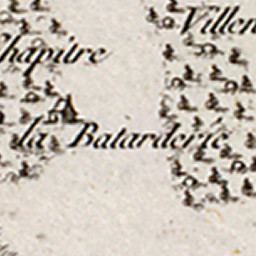 Villen
Chapitre
la Batarderie